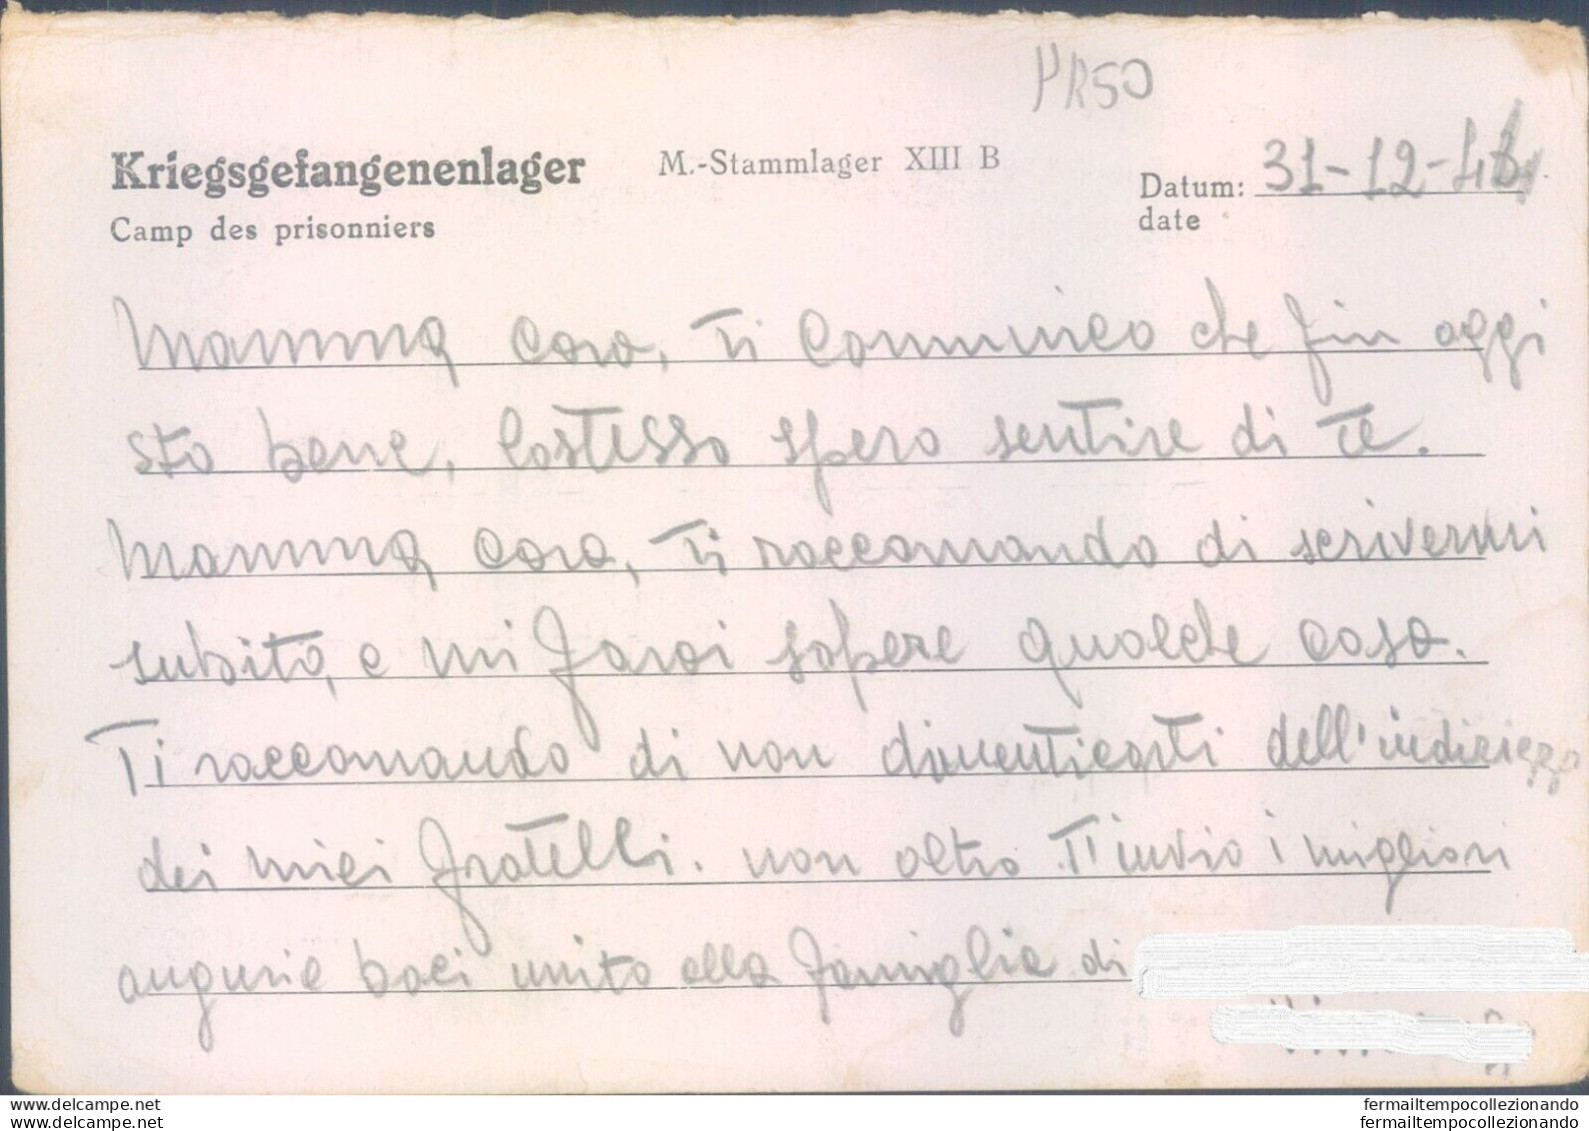 PR50
Kriegsgefangenenlager M.-Stammlager XIII B
Datum: 31-12-43
Camp des prisonniers
date
Mamma cara, Ti Comunico che fin oggi
sto bene, lostesso spero sentire di te.
Mamma cara, Ti raccomando di scrivermi
subito, e mi farai sapere qualche cosa.
Ti raccomando di non dimenticarti dell'indirizzo
dei miei fratelli. non altro Ti invio i migliori
augurie baci unito alla famiglia di
www.delcampe.net fermailtempocollezionando
www.delcampe.net fermailtempocollezionando